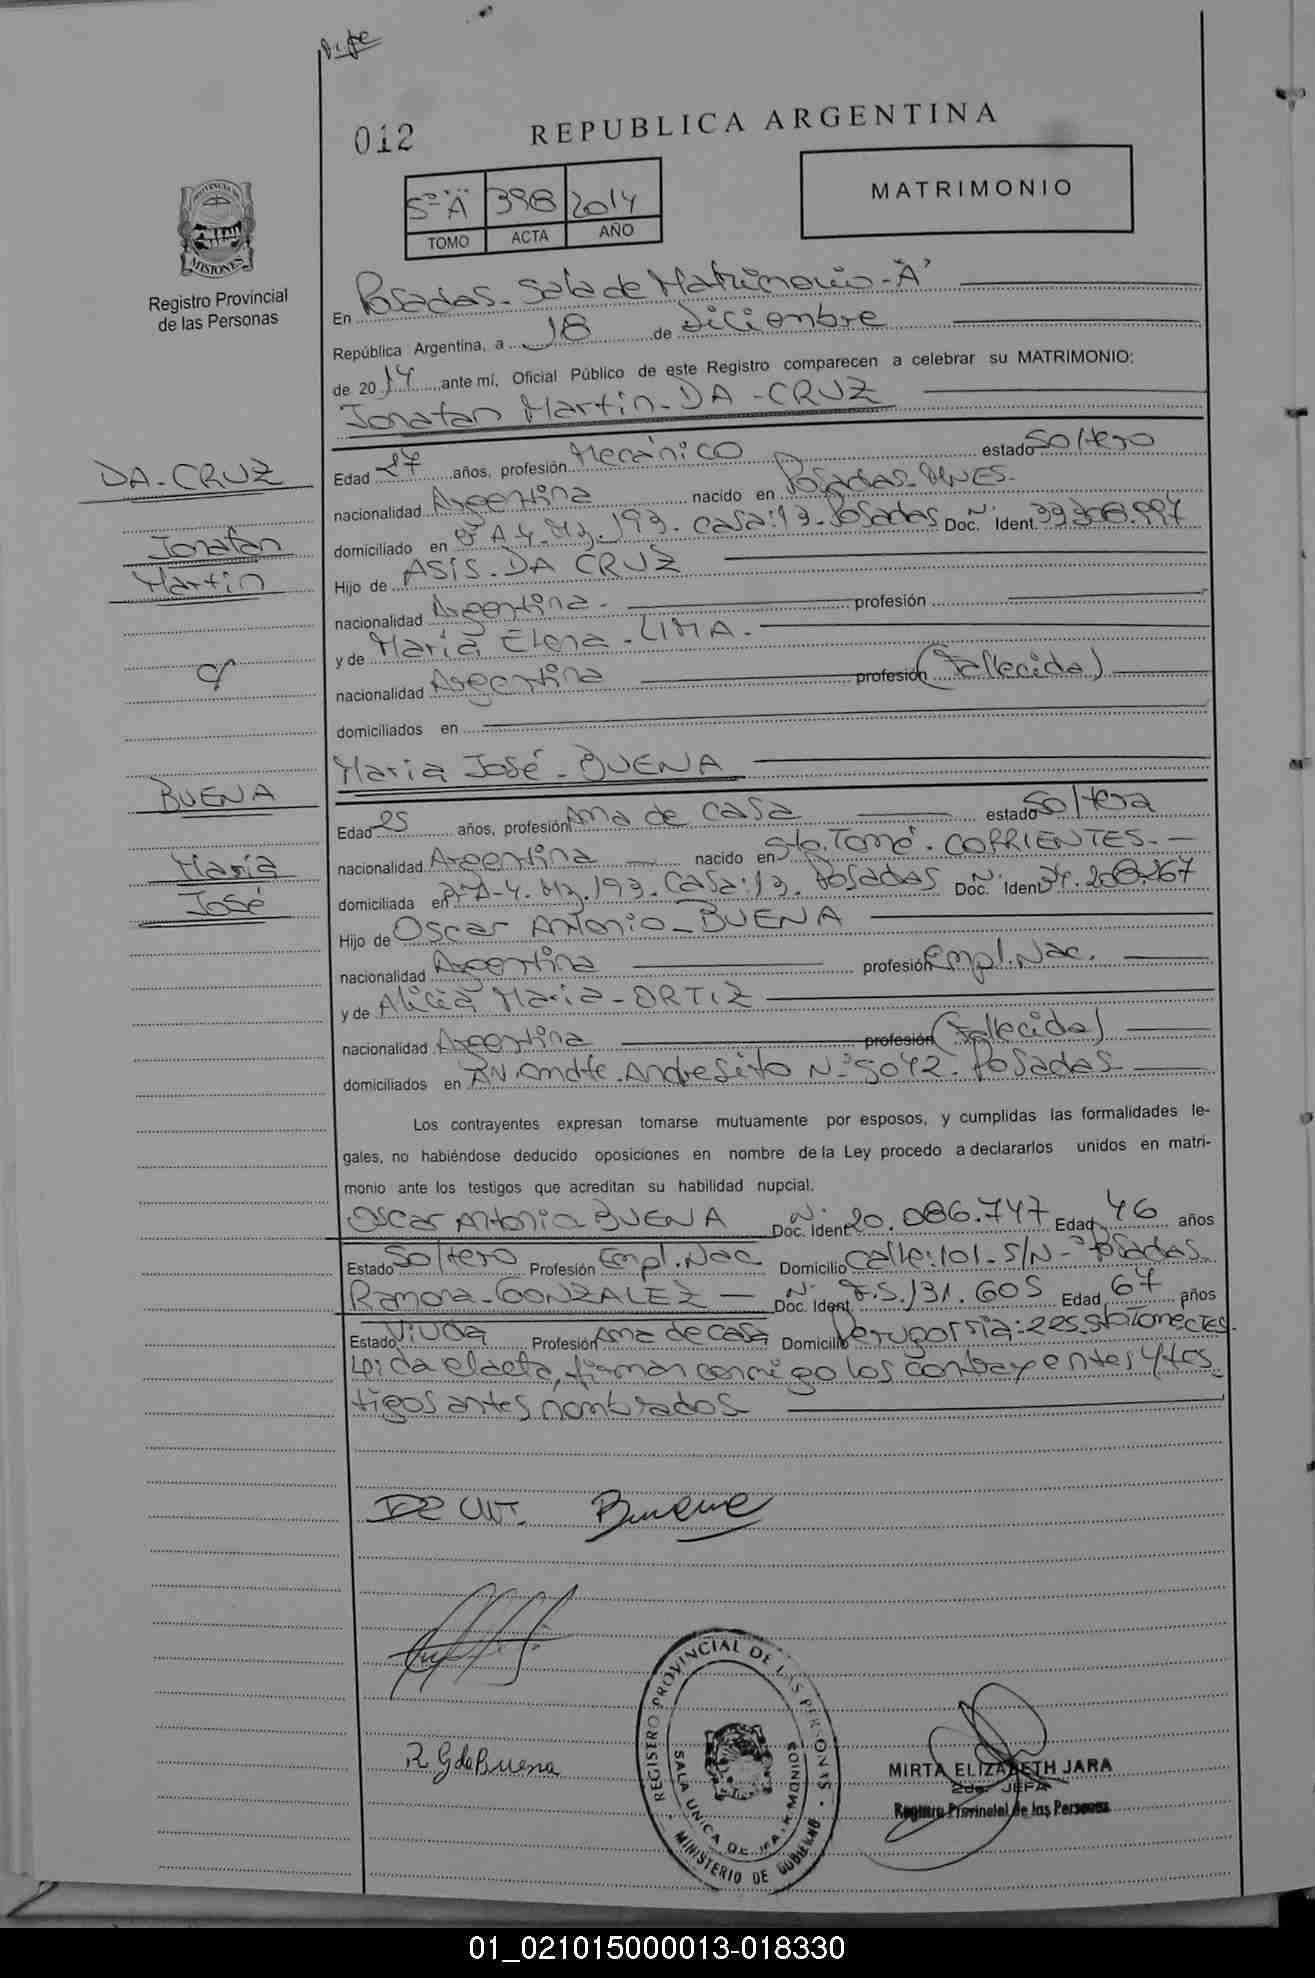 012
REPUBLICA ARGENTINA
5º "A" 398 2014
TOMO ACTA AÑO
MATRIMONIO
PROVINCIA DE
MISIONES
Registro Provincial
de las Personas
En Posadas - Sala de Matrimonio - "A"
República Argentina, a 18 de diciembre
de 2014 ante mí, Oficial Público de este Registro comparecen a celebrar su MATRIMONIO:
Jonatan Martin - DA - CRUZ
DA - CRUZ
Jonatan
Martin
c/
BUENA
María
José
Edad 27 años, profesión Mecánico estado Soltero
nacionalidad Argentina nacido en Posadas - MNES.
domiciliado en A-4. Mz. 193. casa: 13. Posadas Doc. Nº Ident.
Hijo de ASIS. DA CRUZ
nacionalidad Argentina. profesión
y de María Elena - LIMA.
nacionalidad Argentina profesión (Fallecida)
domiciliados en
María José - BUENA
Edad 25 años, profesión Ama de casa estado Soltera
nacionalidad Argentina nacido en Sto. Tomé. CORRIENTES.
domiciliada en A-4. Mz. 193. Casa: 13. Posadas Doc. Nº Ident 34.208.267
Hijo de Oscar Antonio - BUENA
nacionalidad Argentina profesión Empl. Nac.
y de Alicia María - ORTIZ
nacionalidad Argentina profesión (Fallecida)
domiciliados en Av. Cmdte. Andresito Nº 5042. Posadas
Los contrayentes expresan tomarse mutuamente por esposos, y cumplidas las formalidades le-
gales, no habiéndose deducido oposiciones en nombre de la Ley procedo a declararlos unidos en matri-
monio ante los testigos que acreditan su habilidad nupcial.
Oscar Antonio BUENA Doc. Nº Ident 20.086.747 Edad 46 años
Estado Soltero Profesión Empl. Nac Domicilio Calle: 101 - S/N - Posadas
Ramona - GONZALEZ Doc. Nº Ident. F.5.131.605 Edad 67 años
Estado Viuda Profesión Ama de casa Domicilio Perugorria: 225. Sto Tome CTES.
Leida el acta, firman conmigo los contrayentes y tes
tigos antes nombrados
Buena
R G de Buena
REGISTRO PROVINCIAL DE LAS PERSONAS
SALA UNICA DE MATRIMONIOS
MINISTERIO DE GOBIERNO
MIRTA ELIZABETH JARA
2da. JEFA
Registro Provincial de las Personas
01_021015000013-018330